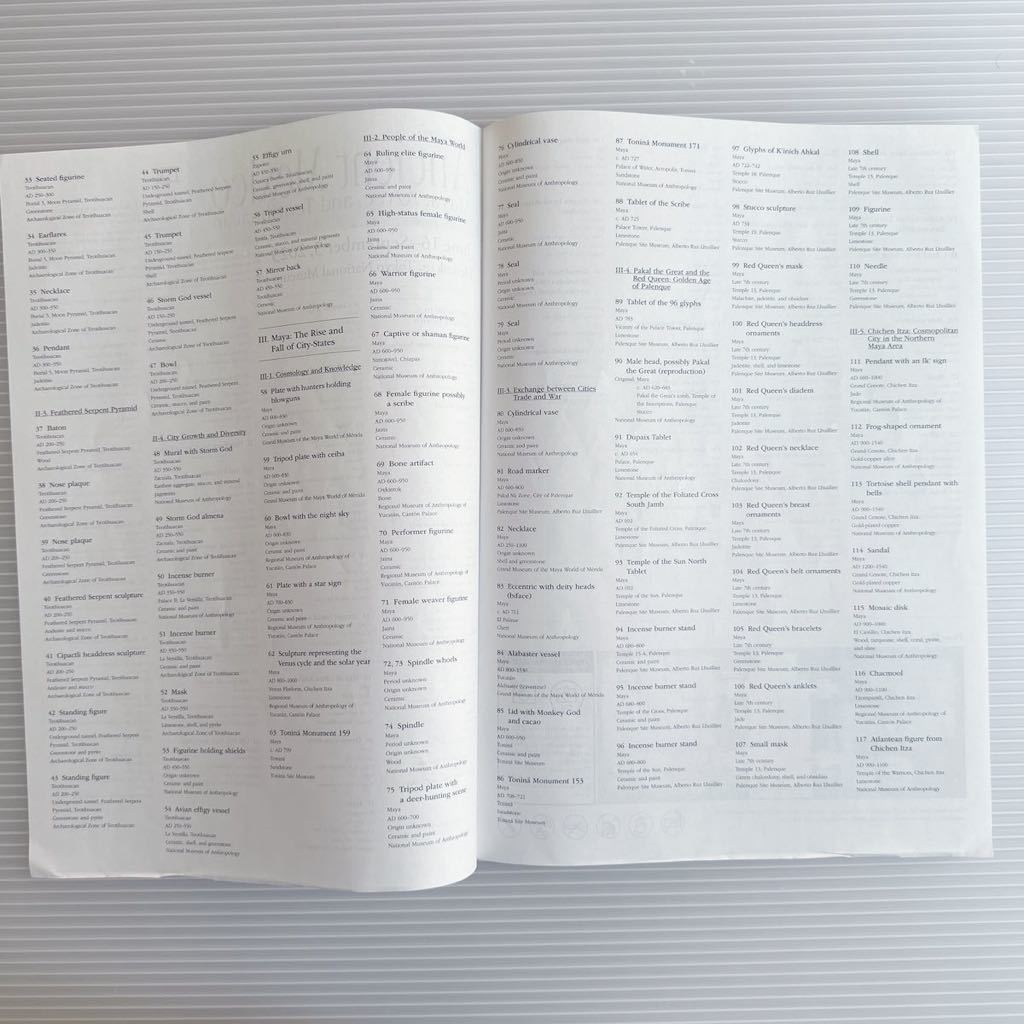 33 Seated figurine
Teotihuacan
AD 200–300
Burial 3, Moon Pyramid, Teotihuacan
Greenstone
Archaeological Zone of Teotihuacan
34 Earflares
Teotihuacan
AD 300–350
Burial 5, Moon Pyramid, Teotihuacan
Jadeite
Archaeological Zone of Teotihuacan
35 Necklace
Teotihuacan
AD 300–350
Burial 5, Moon Pyramid, Teotihuacan
Jadeite
Archaeological Zone of Teotihuacan
36 Pendant
Teotihuacan
AD 300–350
Burial 5, Moon Pyramid, Teotihuacan
Jadeite
Archaeological Zone of Teotihuacan
II-3. Feathered Serpent Pyramid
37 Baton
Teotihuacan
AD 200–250
Feathered Serpent Pyramid, Teotihuacan
Wood
Archaeological Zone of Teotihuacan
38 Nose plaque
Teotihuacan
AD 200–250
Feathered Serpent Pyramid, Teotihuacan
Greenstone
Archaeological Zone of Teotihuacan
39 Nose plaque
Teotihuacan
AD 200–250
Feathered Serpent Pyramid, Teotihuacan
Greenstone
Archaeological Zone of Teotihuacan
40 Feathered Serpent sculpture
Teotihuacan
AD 200–250
Feathered Serpent Pyramid, Teotihuacan
Andesite and stucco
Archaeological Zone of Teotihuacan
41 Cipactli headdress sculpture
Teotihuacan
AD 200–250
Feathered Serpent Pyramid, Teotihuacan
Andesite and stucco
Archaeological Zone of Teotihuacan
42 Standing figure
Teotihuacan
AD 200–250
Underground tunnel, Feathered Serpent
Pyramid, Teotihuacan
Greenstone and pyrite
Archaeological Zone of Teotihuacan
43 Standing figure
Teotihuacan
AD 200–250
Underground tunnel, Feathered Serpent
Pyramid, Teotihuacan
Greenstone and pyrite
Archaeological Zone of Teotihuacan
44 Trumpet
Teotihuacan
AD 150–250
Underground tunnel, Feathered Serpent
Pyramid, Teotihuacan
Shell
Archaeological Zone of Teotihuacan
45 Trumpet
Teotihuacan
AD 150–250
Underground tunnel, Feathered Serpent
Pyramid, Teotihuacan
Shell
Archaeological Zone of Teotihuacan
46 Storm God vessel
Teotihuacan
AD 150–250
Underground tunnel, Feathered Serpent
Pyramid, Teotihuacan
Ceramic
Archaeological Zone of Teotihuacan
47 Bowl
Teotihuacan
AD 200–250
Underground tunnel, Feathered Serpent
Pyramid, Teotihuacan
Ceramic, stucco, and paint
Archaeological Zone of Teotihuacan
II-4. City Growth and Diversity
48 Mural with Storm God
Teotihuacan
AD 350–550
Zacuala, Teotihuacan
Earthen aggregate, stucco, and mineral
pigments
National Museum of Anthropology
49 Storm God almena
Teotihuacan
AD 250–550
Zacuala, Teotihuacan
Ceramic and paint
Archaeological Zone of Teotihuacan
50 Incense burner
Teotihuacan
AD 350–550
Palace B, La Ventilla, Teotihuacan
Ceramic and paint
National Museum of Anthropology
51 Incense burner
Teotihuacan
AD 350–550
La Ventilla, Teotihuacan
Ceramic and paint
Archaeological Zone of Teotihuacan
52 Mask
Teotihuacan
AD 350–550
La Ventilla, Teotihuacan
Limestone, shell, and pyrite
Archaeological Zone of Teotihuacan
53 Figurine holding shields
Teotihuacan
AD 450–550
Origin unknown
Ceramic and paint
National Museum of Anthropology
54 Avian effigy vessel
Teotihuacan
AD 250–350
La Ventilla, Teotihuacan
Ceramic, shell, and greenstone
National Museum of Anthropology
55 Effigy urn
Zapotec
AD 350–550
Oaxaca Barrio, Teotihuacan
Ceramic, greenstone, shell, and paint
National Museum of Anthropology
56 Tripod vessel
Teotihuacan
AD 450–550
Tetitla, Teotihuacan
Ceramic, stucco, and mineral pigments
National Museum of Anthropology
57 Mirror back
Teotihuacan
AD 450–550
Teotihuacan
Ceramic
National Museum of Anthropology
III. Maya: The Rise and
Fall of City-States
III-1. Cosmology and Knowledge
58 Plate with hunters holding
blowguns
Maya
AD 600–830
Origin unknown
Ceramic and paint
Grand Museum of the Maya World of Mérida
59 Tripod plate with ceiba
Maya
AD 500–850
Origin unknown
Ceramic and paint
Grand Museum of the Maya World of Mérida
60 Bowl with the night sky
Maya
AD 600–830
Origin unknown
Ceramic and paint
Regional Museum of Anthropology of
Yucatán, Cantón Palace
61 Plate with a star sign
Maya
AD 700–830
Origin unknown
Ceramic and paint
Regional Museum of Anthropology of
Yucatán, Cantón Palace
62 Sculpture representing the
Venus cycle and the solar year
Maya
AD 800–1000
Venus Platform, Chichen Itza
Limestone
Regional Museum of Anthropology of
Yucatán, Cantón Palace
63 Toniná Monument 159
Maya
c. AD 799
Toniná
Sandstone
Toniná Site Museum
III-2. People of the Maya World
64 Ruling elite figurine
Maya
AD 600–950
Jaina
Ceramic and paint
National Museum of Anthropology
65 High-status female figurine
Maya
AD 600–950
Jaina
Ceramic and paint
National Museum of Anthropology
66 Warrior figurine
Maya
AD 600–950
Jaina
Ceramic
National Museum of Anthropology
67 Captive or shaman figurine
Maya
AD 600–950
Simojovel, Chiapas
Ceramic
National Museum of Anthropology
68 Female figurine possibly
a scribe
Maya
AD 600–950
Jaina
Ceramic
National Museum of Anthropology
69 Bone artifact
Maya
AD 600–950
Oxkintok
Bone
Regional Museum of Anthropology of
Yucatán, Cantón Palace
70 Performer figurine
Maya
AD 600–950
Jaina
Ceramic
Regional Museum of Anthropology of
Yucatán, Cantón Palace
71 Female weaver figurine
Maya
AD 600–950
Jaina
Ceramic
National Museum of Anthropology
72, 73 Spindle whorls
Maya
Period unknown
Origin unknown
Ceramic
National Museum of Anthropology
74 Spindle
Maya
Period unknown
Origin unknown
Wood
National Museum of Anthropology
75 Tripod plate with
a deer-hunting scene
Maya
AD 600–700
Origin unknown
Ceramic and paint
National Museum of Anthropology
76 Cylindrical vase
Maya
AD 600–850
Origin unknown
Ceramic and paint
National Museum of Anthropology
77 Seal
Maya
AD 600–950
Jaina
Ceramic
National Museum of Anthropology
78 Seal
Maya
Period unknown
Origin unknown
Ceramic
National Museum of Anthropology
79 Seal
Maya
Period unknown
Origin unknown
Ceramic
National Museum of Anthropology
III-3. Exchange between Cities
Trade and War
80 Cylindrical vase
Maya
AD 600–850
Origin unknown
Ceramic and paint
National Museum of Anthropology
81 Road marker
Maya
AD 600–800
Pakal Ná Zone, City of Palenque
Limestone
Palenque Site Museum, Alberto Ruz Lhuillier
82 Necklace
Maya
AD 250–1100
Origin unknown
Shell and greenstone
Grand Museum of the Maya World of Mérida
83 Eccentric with deity heads
(biface)
Maya
c. AD 711
El Palmar
Chert
National Museum of Anthropology
84 Alabaster vessel
Maya
AD 900–1540
Yucatán
Alabaster (travertine)
Grand Museum of the Maya World of Mérida
85 Lid with Monkey God
and cacao
Maya
AD 600–950
Toniná
Ceramic and paint
Toniná Site Museum
86 Toniná Monument 153
Maya
AD 708–721
Toniná
Sandstone
Toniná Site Museum
87 Toniná Monument 171
Maya
c. AD 727
Palace of Water, Acropolis, Toniná
Sandstone
National Museum of Anthropology
88 Tablet of the Scribe
Maya
c. AD 725
Palace Tower, Palenque
Limestone
Palenque Site Museum, Alberto Ruz Lhuillier
III-4. Pakal the Great and the
Red Queen: Golden Age
of Palenque
89 Tablet of the 96 glyphs
Maya
AD 783
Vicinity of the Palace Tower, Palenque
Limestone
Palenque Site Museum, Alberto Ruz Lhuillier
90 Male head, possibly Pakal
the Great (reproduction)
Original: Maya
c. AD 620–683
Pakal the Great's tomb, Temple of
the Inscriptions, Palenque
Stucco
National Museum of Anthropology
91 Dupaix Tablet
Maya
c. AD 654
Palace, Palenque
Limestone
Palenque Site Museum, Alberto Ruz Lhuillier
92 Temple of the Foliated Cross
South Jamb
Maya
AD 692
Temple of the Foliated Cross, Palenque
Limestone
Palenque Site Museum, Alberto Ruz Lhuillier
93 Temple of the Sun North
Tablet
Maya
AD 692
Temple of the Sun, Palenque
Limestone
Palenque Site Museum, Alberto Ruz Lhuillier
94 Incense burner stand
Maya
AD 680–800
Temple 15-A, Palenque
Ceramic and paint
Palenque Site Museum, Alberto Ruz Lhuillier
95 Incense burner stand
Maya
AD 680–800
Temple of the Cross, Palenque
Ceramic and paint
Palenque Site Museum, Alberto Ruz Lhuillier
96 Incense burner stand
Maya
AD 680–800
Temple of the Sun, Palenque
Ceramic and paint
Palenque Site Museum, Alberto Ruz Lhuillier
97 Glyphs of K'inich Ahkal
Maya
AD 722–742
Temple 18, Palenque
Stucco
Palenque Site Museum, Alberto Ruz Lhuillier
98 Stucco sculpture
Maya
AD 734
Temple 19, Palenque
Stucco
Palenque Site Museum, Alberto Ruz Lhuillier
99 Red Queen's mask
Maya
Late 7th century
Temple 13, Palenque
Malachite, jadeite, and obsidian
Palenque Site Museum, Alberto Ruz Lhuillier
100 Red Queen's headdress
ornaments
Maya
Late 7th century
Temple 13, Palenque
Jadeite, shell, and limestone
Palenque Site Museum, Alberto Ruz Lhuillier
101 Red Queen's diadem
Maya
Late 7th century
Temple 13, Palenque
Jadeite
Palenque Site Museum, Alberto Ruz Lhuillier
102 Red Queen's necklace
Maya
Late 7th century
Temple 13, Palenque
Chalcedony
Palenque Site Museum, Alberto Ruz Lhuillier
103 Red Queen's breast
ornaments
Maya
Late 7th century
Temple 13, Palenque
Jadeite
Palenque Site Museum, Alberto Ruz Lhuillier
104 Red Queen's belt ornaments
Maya
Late 7th century
Temple 13, Palenque
Limestone
Palenque Site Museum, Alberto Ruz Lhuillier
105 Red Queen's bracelets
Maya
Late 7th century
Temple 13, Palenque
Greenstone
Palenque Site Museum, Alberto Ruz Lhuillier
106 Red Queen's anklets
Maya
Late 7th century
Temple 13, Palenque
Jade
Palenque Site Museum, Alberto Ruz Lhuillier
107 Small mask
Maya
Late 7th century
Temple 13, Palenque
Green chalcedony, shell, and obsidian
Palenque Site Museum, Alberto Ruz Lhuillier
108 Shell
Maya
Late 7th century
Temple 13, Palenque
Shell
Palenque Site Museum, Alberto Ruz Lhuillier
109 Figurine
Maya
Late 7th century
Temple 13, Palenque
Limestone
Palenque Site Museum, Alberto Ruz Lhuillier
110 Needle
Maya
Late 7th century
Temple 13, Palenque
Greenstone
Palenque Site Museum, Alberto Ruz Lhuillier
III-5. Chichen Itza: Cosmopolitan
City in the Northern
Maya Area
111 Pendant with an Ik' sign
Maya
AD 660–1000
Grand Cenote, Chichen Itza
Jade
Regional Museum of Anthropology of
Yucatán, Cantón Palace
112 Frog-shaped ornament
Maya
AD 900–1540
Grand Cenote, Chichen Itza
Gold-copper alloy
National Museum of Anthropology
113 Tortoise shell pendant with
bells
Maya
AD 900–1540
Grand Cenote, Chichen Itza
Gold-plated copper
National Museum of Anthropology
114 Sandal
Maya
AD 1200–1540
Grand Cenote, Chichen Itza
Gold-plated copper
National Museum of Anthropology
115 Mosaic disk
Maya
AD 900–1000
El Castillo, Chichen Itza
Wood, turquoise, shell, coral, pyrite,
and slate
National Museum of Anthropology
116 Chacmool
Maya
AD 900–1100
Tzompantli, Chichen Itza
Limestone
Regional Museum of Anthropology of
Yucatán, Cantón Palace
117 Atlantean figure from
Chichen Itza
Maya
AD 900–1100
Temple of the Warriors, Chichen Itza
Limestone
National Museum of Anthropology